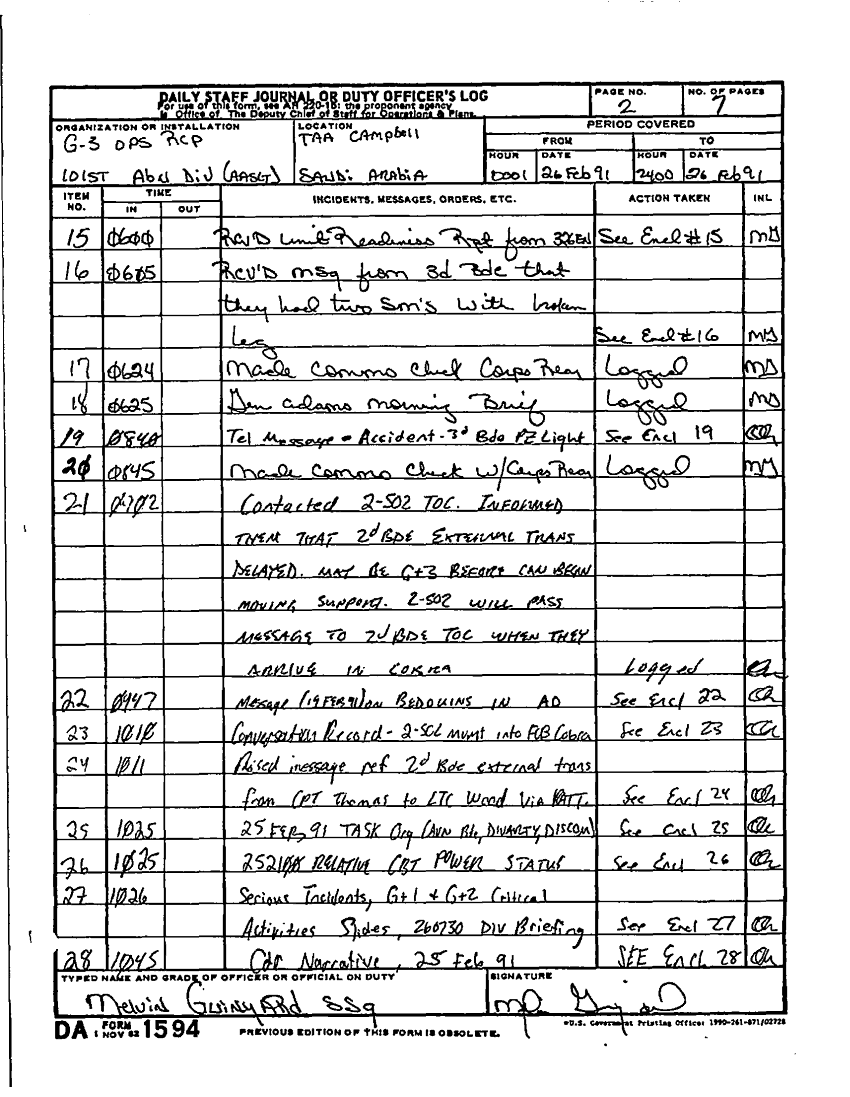 DAILY STAFF JOURNAL OR DUTY OFFICER'S LOG
For use of this form, see AR 220-15; the proponent agency
is Office of The Deputy Chief of Staff for Operations & Plans.
PAGE NO.
2
NO. OF PAGES
7
ORGANIZATION OR INSTALLATION
G-3 OPS RCP
101ST Abn Div (AASLT)
LOCATION
TAA Campbell
SAUDI ARABIA
PERIOD COVERED
FROM TO
HOUR DATE HOUR DATE
0001 26 Feb 91 2400 26 Feb 91
ITEM NO. TIME IN OUT INCIDENTS, MESSAGES, ORDERS, ETC. ACTION TAKEN INL
15 0600 RCV'D Unit Readiness Rpt from 326EN See Encl #15 MG
16 0605 RCV'D msg from 3d Bde that
they had two Sm's with broken
leg See Encl #16 MG
17 0624 Made Commo Check Corps Rear Logged MG
18 0625 Gen Adams Morning Brief Logged MG
19 0840 Tel Message - Accident - 3d Bde PZ Light See Encl 19
20 0845 Made Commo Check w/Corps Rear Logged MG
21 0702 Contacted 2-502 TOC. INFORMED
THEM THAT 2d BDE EXTERNAL TRANS
DELAYED. MAY BE G+3 BEFORE CAN BEGIN
MOVING SUPPORT. 2-502 WILL PASS
MESSAGE TO 2d BDE TOC WHEN THEY
ARRIVE IN COBRA Logged
22 0947 Message (19 FEB 91) on BEDOUINS IN AO See Encl 22
23 1010 Conversation Record - 2-502 mvmt into FOB Cobra See Encl 23
24 1011 message ref 2d Bde external trans
from CPT Thomas to LTC Wood Via See Encl 24
25 1025 25 FEB 91 TASK Org (AVN Bde, DIVARTY, DISCOM) See Encl 25
26 1025 252100 RELATIVE CBT POWER STATUS See Encl 26
27 1026 Serious Incidents, G+1 & G+2 Critical
Activities Slides, 260730 DIV Briefing See Encl 27
28 1045 Cdr Narrative, 25 Feb 91 SEE Encl 28
TYPED NAME AND GRADE OF OFFICER OR OFFICIAL ON DUTY
Melvin SSG
SIGNATURE
DA FORM 1 NOV 62 1594
PREVIOUS EDITION OF THIS FORM IS OBSOLETE.
U.S. Government Printing Office: 1990-261-871/02728